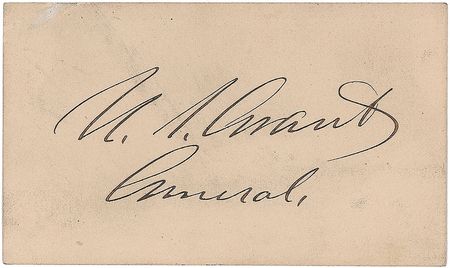 U. S. Grant
General.